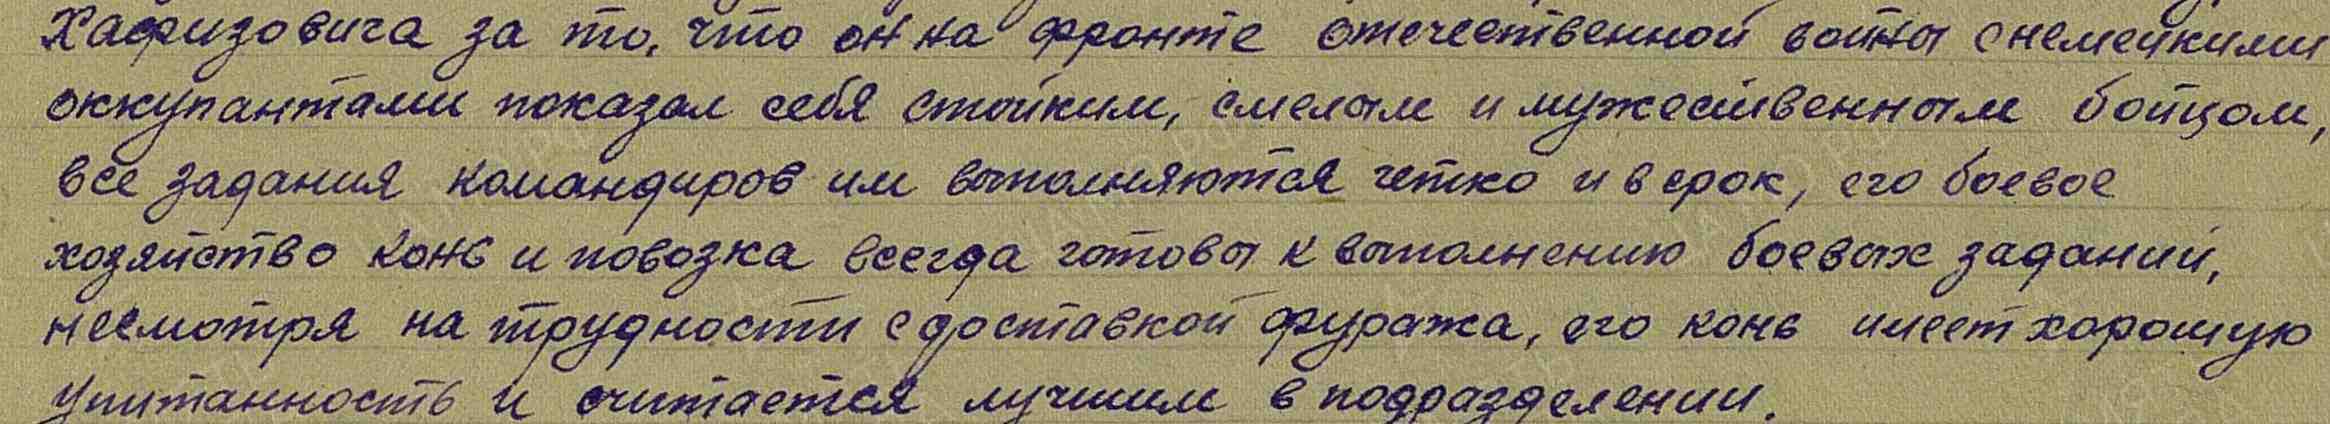 Хафизовича за то, что он на фронте отечественной войны с немецкими
оккупантами показал себя стойким, смелым и мужественным бойцом,
все задания командиров им выполняются четко и в срок, его боевое
хозяйство конь и повозка всегда готовы к выполнению боевых заданий,
несмотря на трудности с доставкой фуража, его конь имеет хорошую
упитанность и считается лучшим в подразделении.